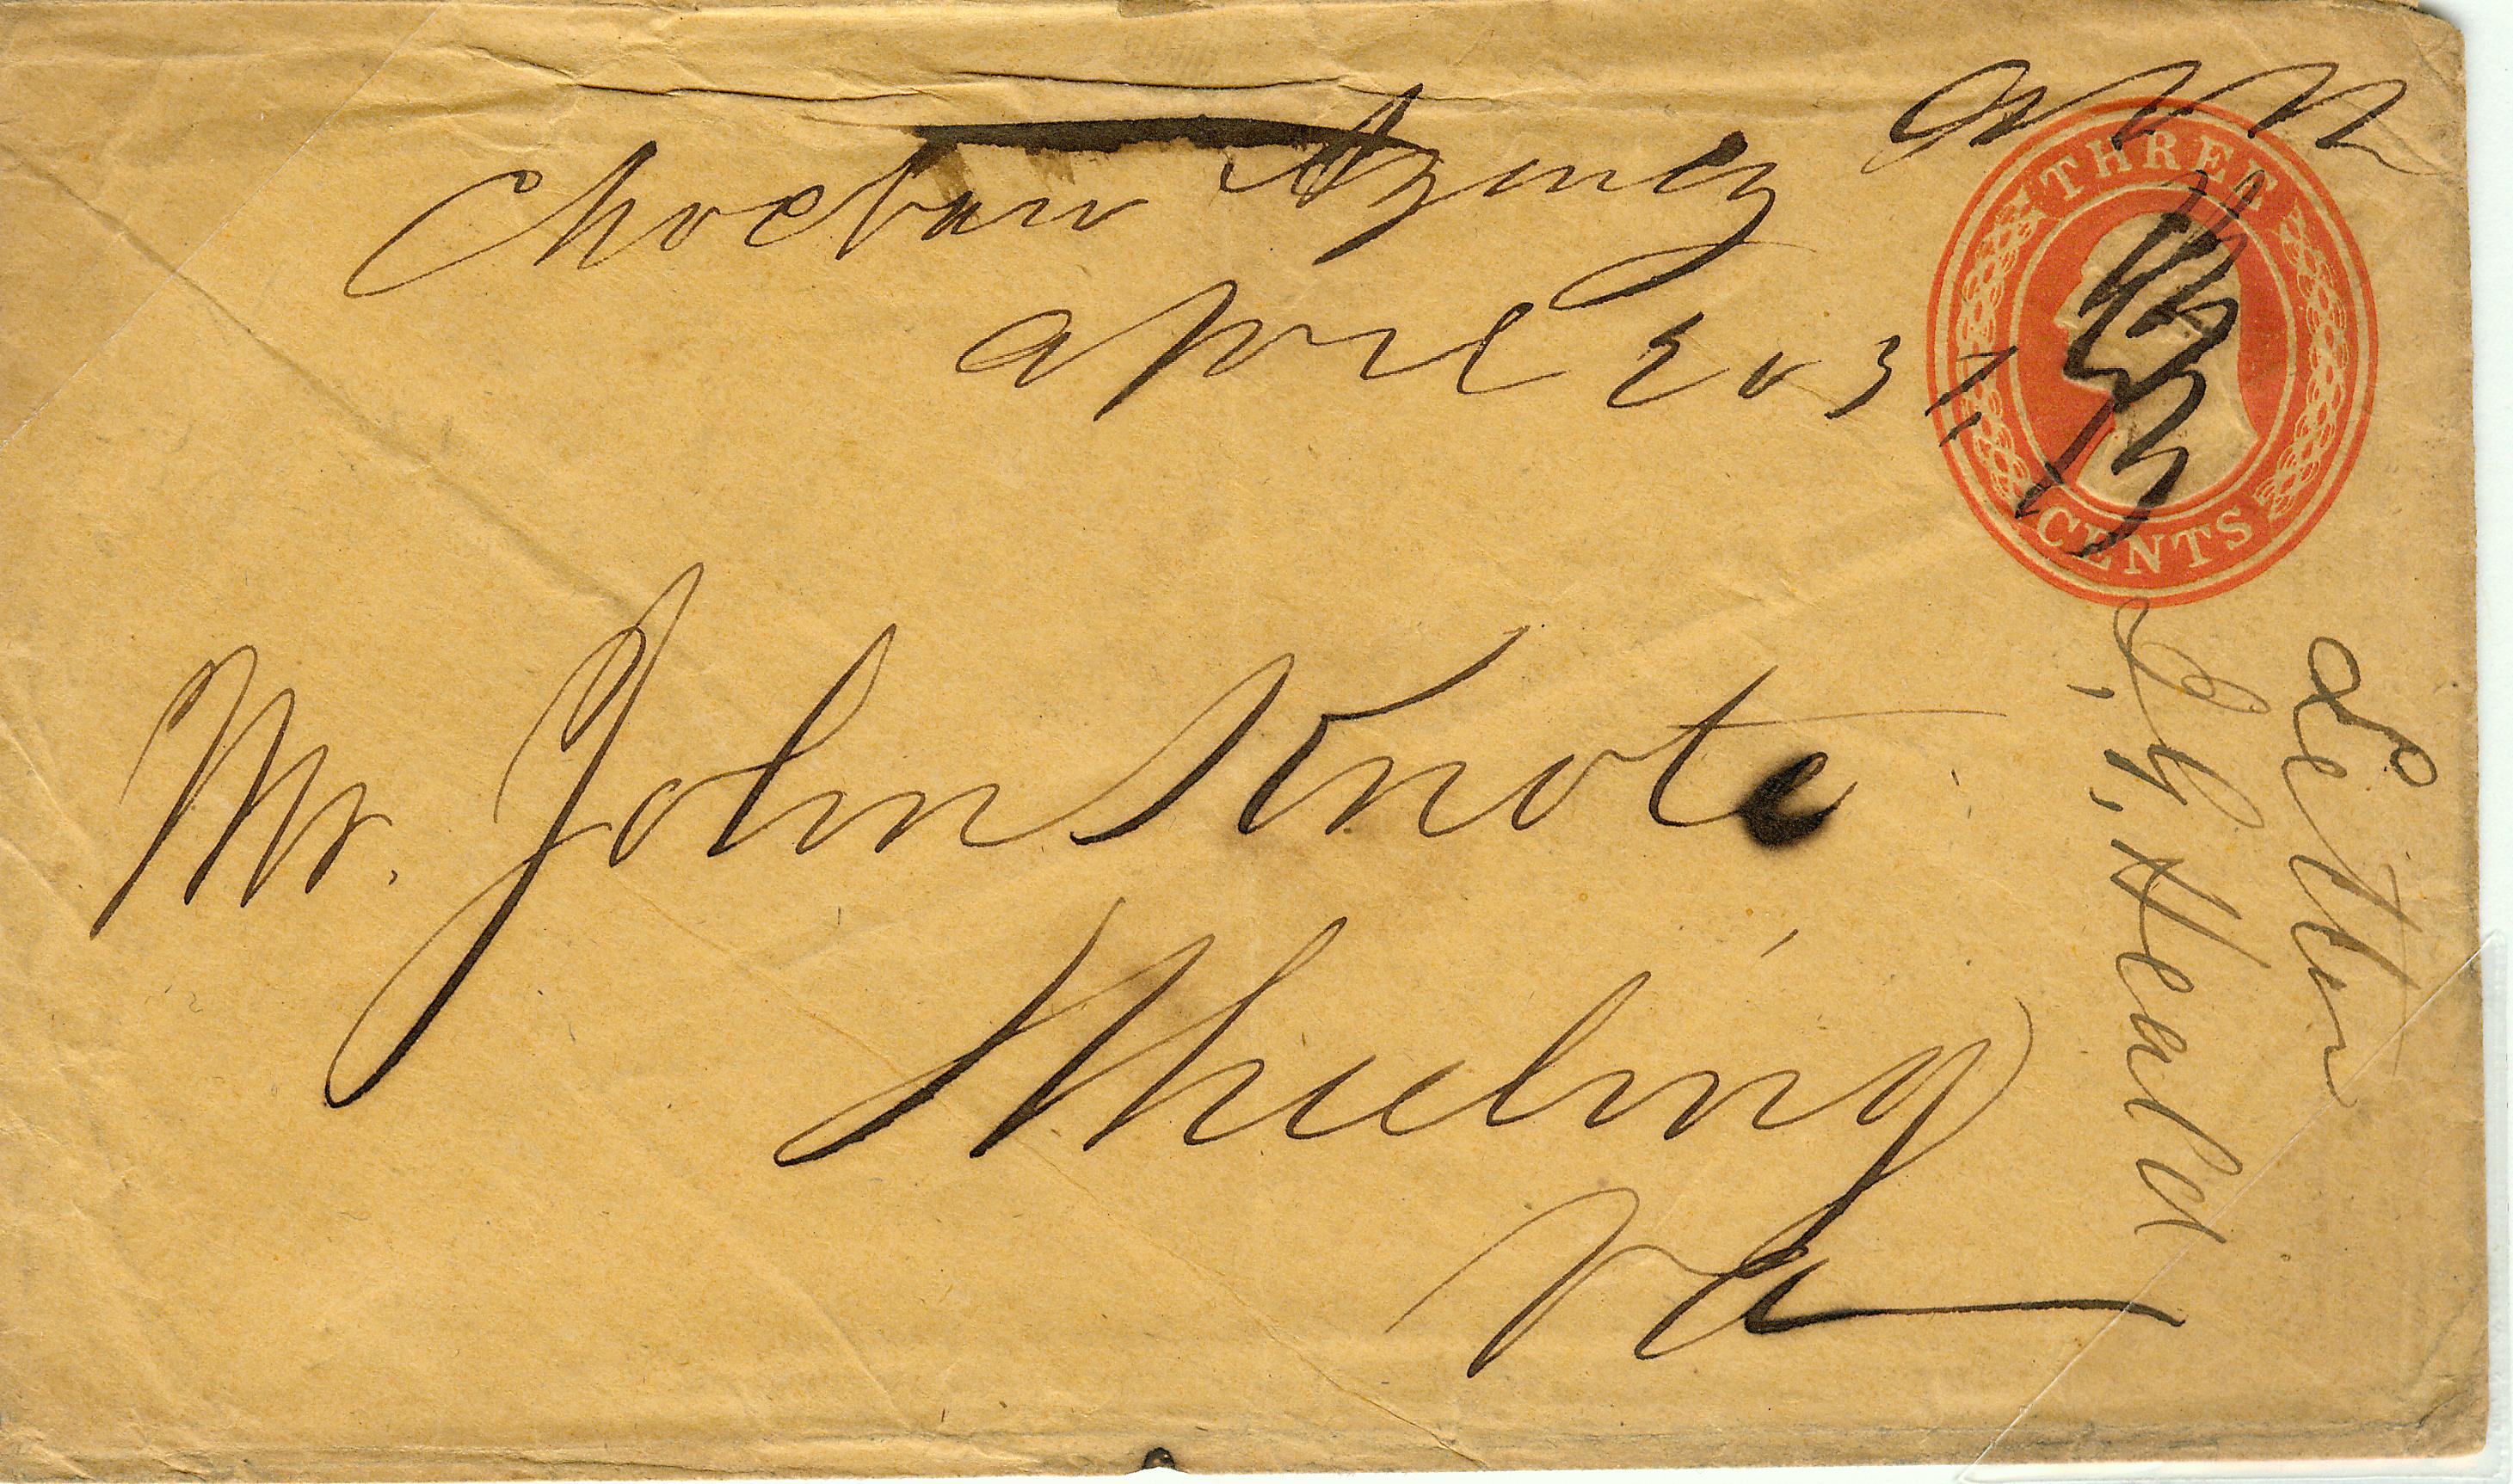 Choctaw Agency
April 20
THREE
CENTS
Mr. John Knote
Wheeling
Va
Letter
Heald